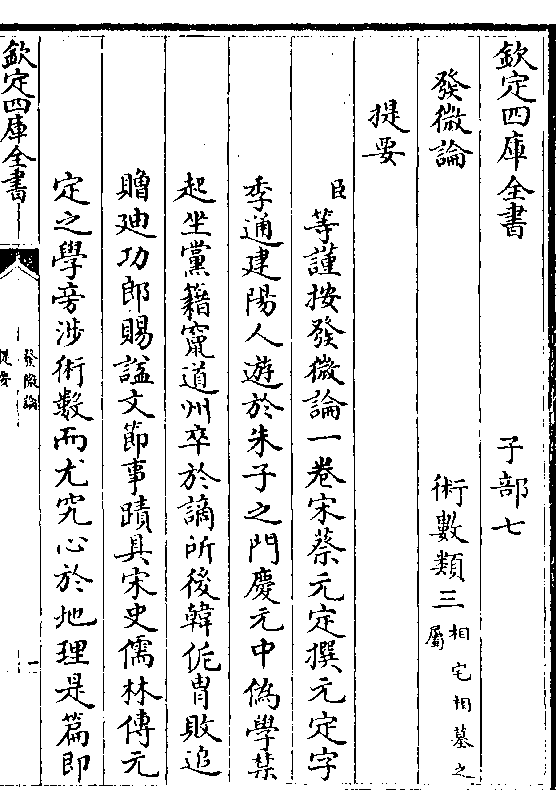 欽定四庫全書　子部七
發微論　術數類三相宅相墓之屬
提要
臣等謹按發微論一卷宋蔡元定撰元定字
季通建陽人遊於朱子之門慶元中偽學禁
起坐黨籍竄道州卒於謫所後韓侂冑敗追
贈迪功郎賜諡文節事蹟具宋史儒林傳元
定之學旁涉術數而尤究心於地理是篇即
欽定四庫全書
發微論
提要
一